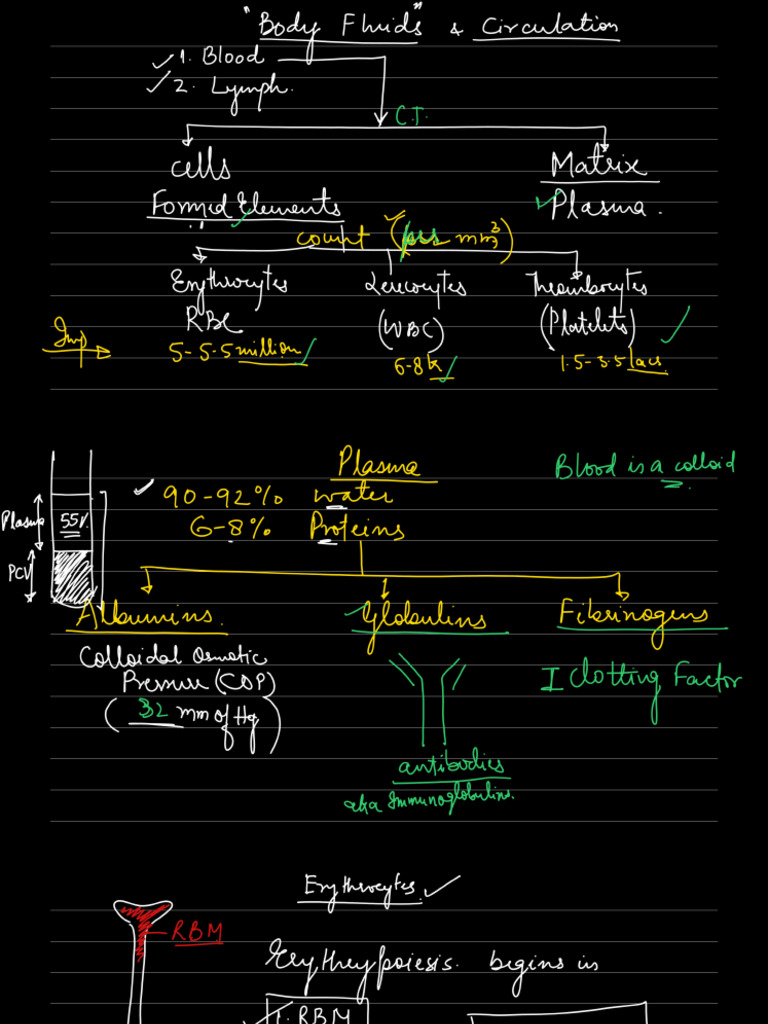 "Body Fluids" & Circulation
1. Blood
2. Lymph.
C.T.
cells
Matrix
Formed Elements
Plasma.
count (per mm³)
Erythrocytes
Leucocytes
Thrombocytes
RBC
(WBC)
(Platelets)
Imp
5-5.5 million
6-8k
1.5-3.5 lacs
Plasma
Blood is a colloid
90-92% water
Plasma
55%
6-8% Proteins
PCV
Albumins.
Globulins
Fibrinogens
Colloidal Osmotic
Pressure (COP)
(32 mm of Hg)
I Clotting Factor
antibodies
aka Immunoglobulins.
Erythrocytes.
RBM
Erythrypoiesis. begins in
1. RBM